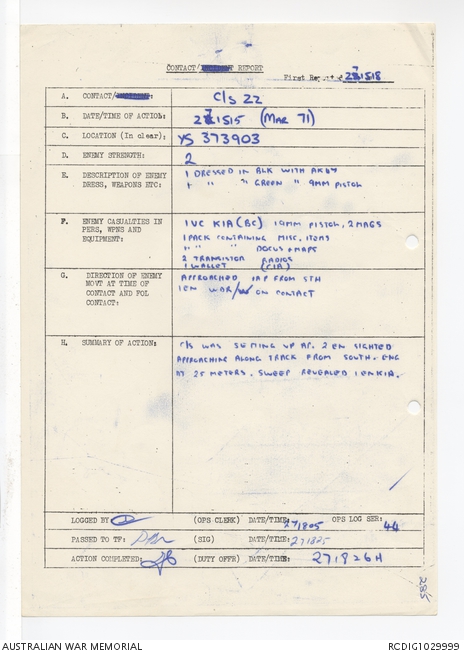 CONTACT/ REPORT
First Reported 271518
A. CONTACT/ : C/S 22
B. DATE/TIME OF ACTION: 271515 (MAR 71)
C. LOCATION (In clear): YS 373903
D. ENEMY STRENGTH: 2
E. DESCRIPTION OF ENEMY DRESS, WEAPONS ETC: 1 DRESSED IN BLK WITH AK47
1 " " GREEN " 9MM PISTOL
F. ENEMY CASUALTIES IN PERS, WPNS AND EQUIPMENT: 1 VC KIA (BC) 1 9MM PISTOL, 2 MAGS
1 PACK CONTAINING MISC. ITEMS
1 " " DOCUS & MAPS
2 TRANSISTOR RADIOS
1 WALLET
G. DIRECTION OF ENEMY MOVT AT TIME OF CONTACT AND FOL CONTACT: APPROACHED IAP FROM STH
1 EN WDR ON CONTACT
H. SUMMARY OF ACTION: C/S WAS SETTING UP AP. 2 EN SIGHTED
APPROACHING ALONG TRACK FROM SOUTH. ENG
AT 25 METERS. SWEEP REVEALED 1 EN KIA.
LOGGED BY (OPS CLERK) DATE/TIME: 271805 OPS LOG SER: 44
PASSED TO TF: (SIG) DATE/TIME: 271825
ACTION COMPLETED: (DUTY OFFR) DATE/TIME: 271826H
285
AUSTRALIAN WAR MEMORIAL
RCDIG1029999